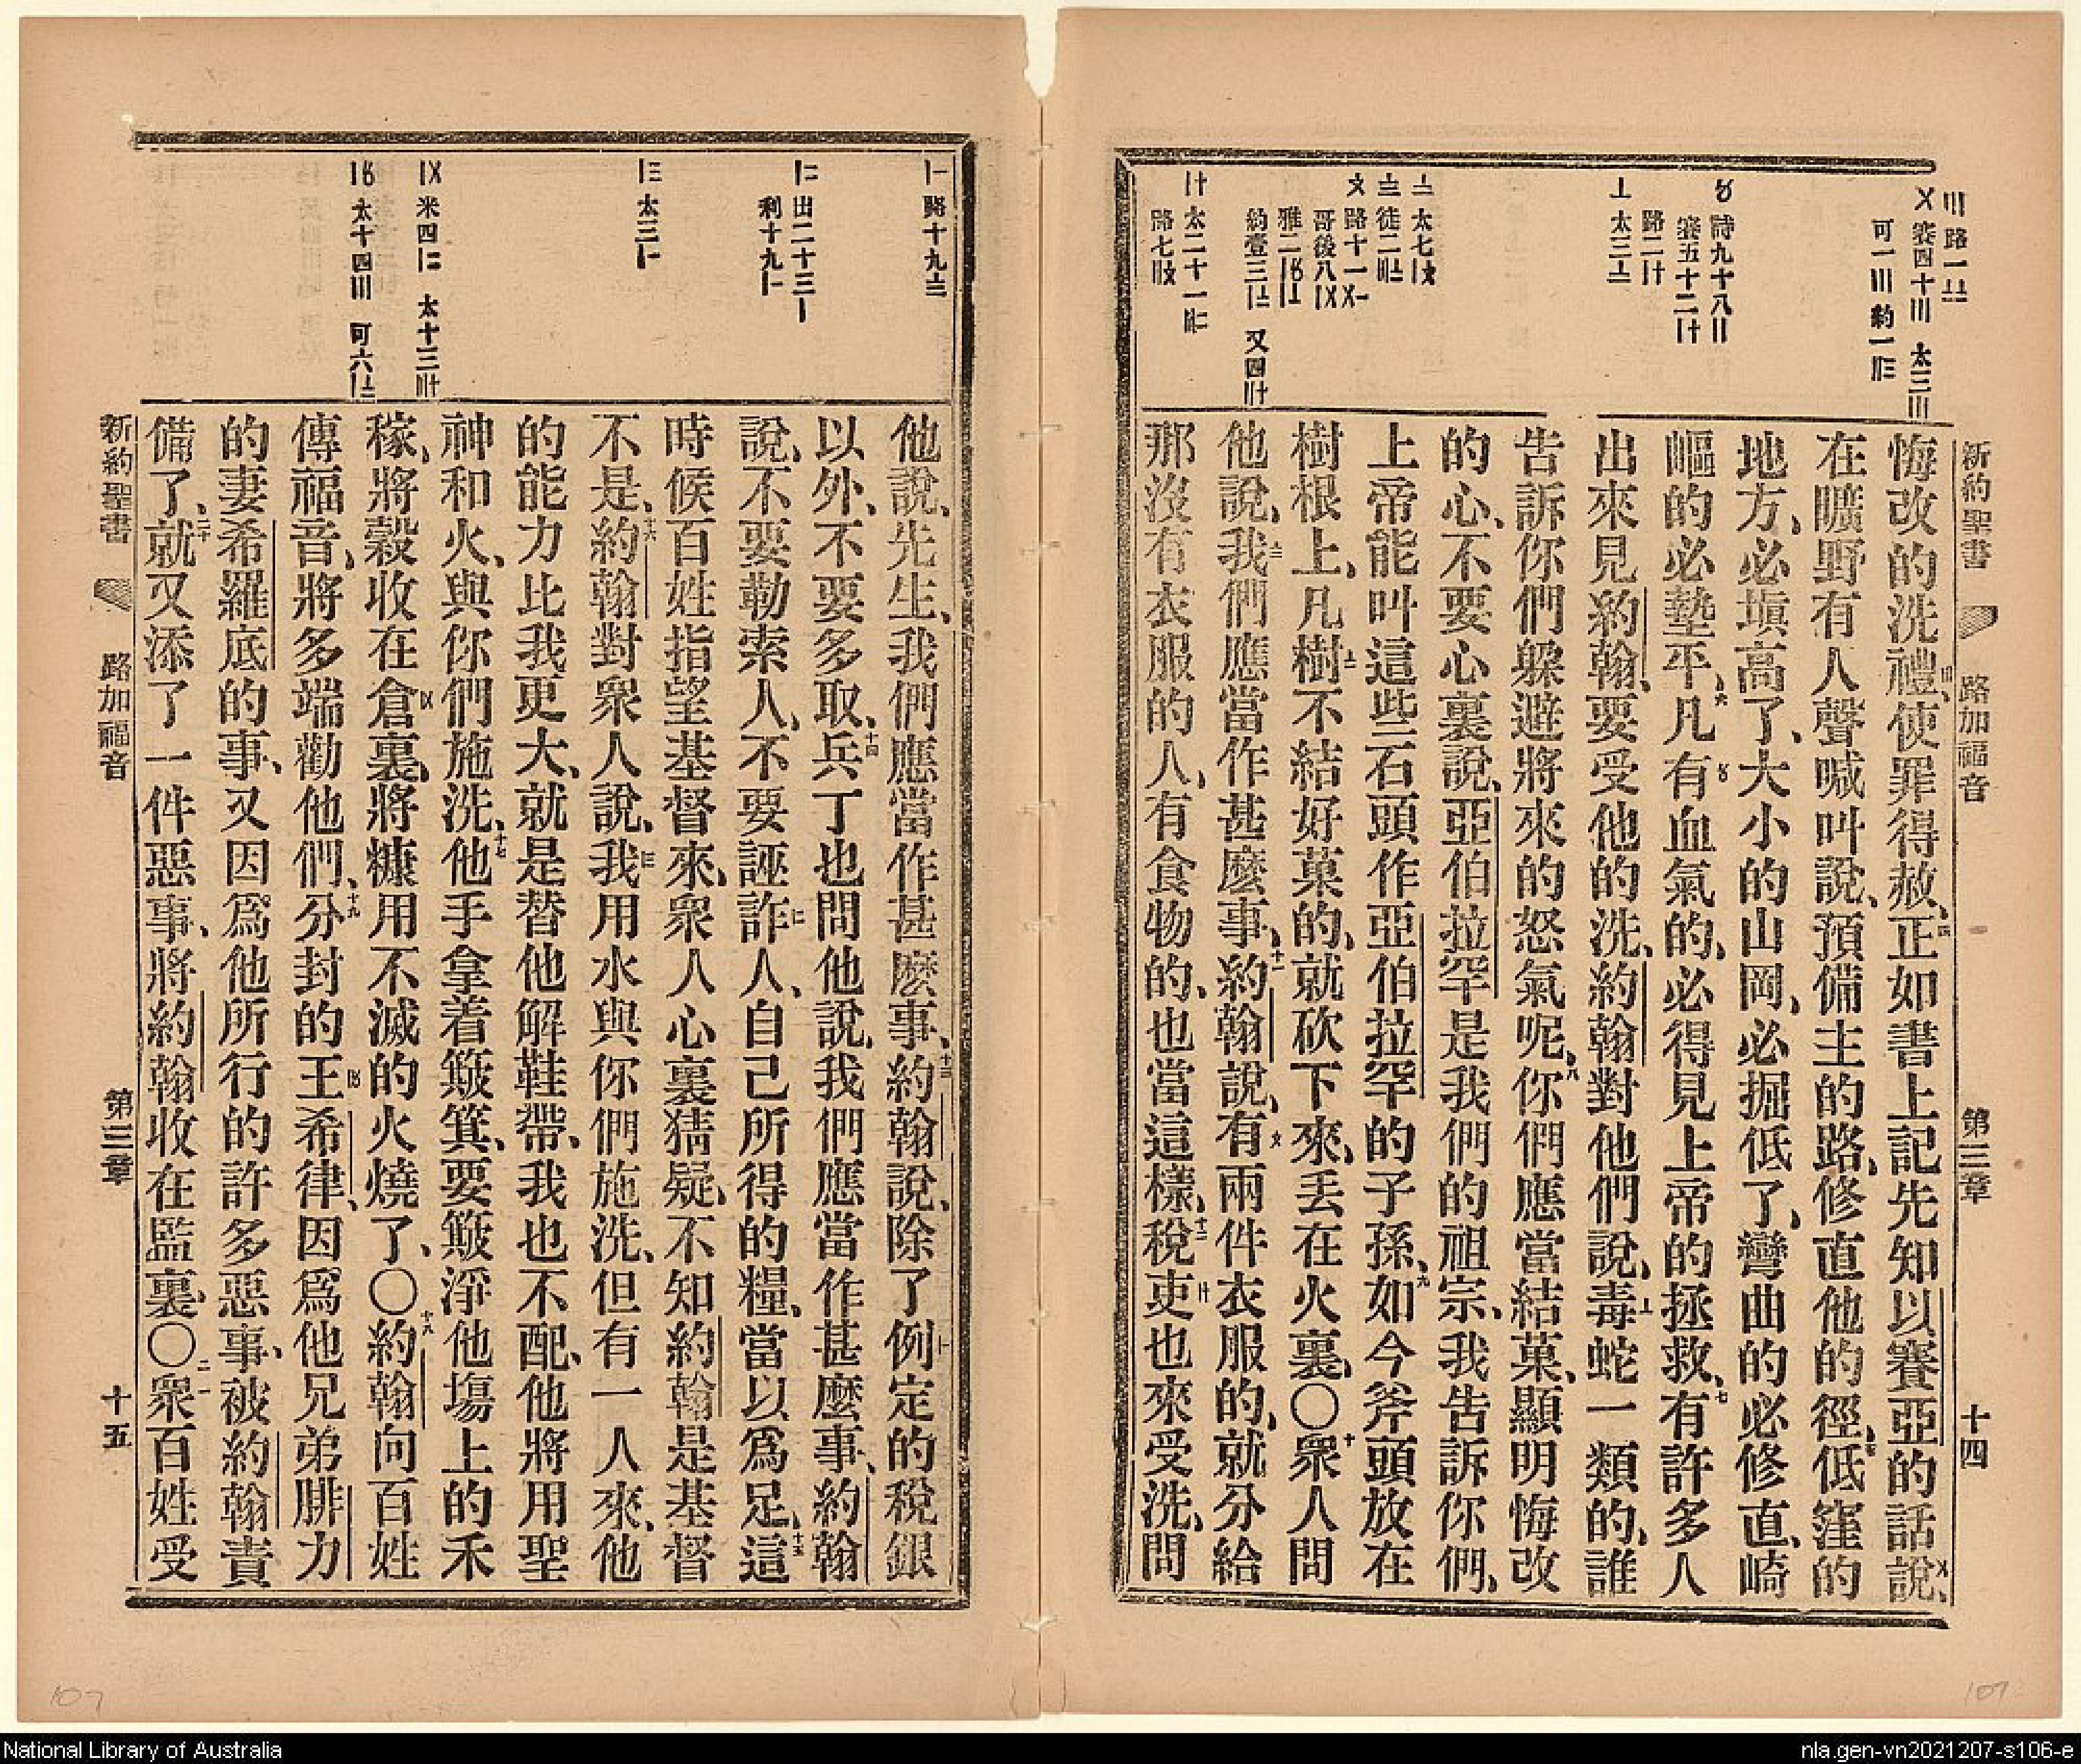 新約聖書 路加福音 第三章 十四
〣路一〨
〤賽四十〣 太三〣
可一〣 約一〢〣
〥詩九十八〢
賽五十二〸
路二〢〸
〦太三〧
〧太七〡〩
〨徒二〣〨
〩路十一〤〡
哥後八〡〤
雅二〡〥〡〦
約壹三〡〧 又四〢〸
〸太二十一〣〢
路七〢〩
悔改的洗禮、使罪得赦、四正如書上記先知以賽亞的話說、
在曠野有人聲喊叫說、預備主的路、修直他的徑、五低窪的
地方、必塡高了、大小的山岡、必掘低了、彎曲的必修直、崎
嶇的必墊平、六凡有血氣的、必得見上帝的拯救、七有許多人
出來見約翰、要受他的洗、約翰對他們說、毒蛇一類的、誰
告訴你們躲避將來的怒氣呢、八你們應當結菓、顯明悔改
的心、不要心裏說、亞伯拉罕是我們的祖宗、我告訴你們、
上帝能叫這些石頭作亞伯拉罕的子孫、九如今斧頭放在
樹根上、凡樹不結好菓的、就砍下來、丟在火裏、〇十衆人問
他說、我們應當作甚麽事、十一約翰說、有兩件衣服的、就分給
那沒有衣服的人、有食物的、也當這樣、十二稅吏也來受洗、問
〡一路十九〨
〡二出二十三〡
利十九〡〡
〡三太三〡〡
〡〤米四〡二 太十三〣〸
〡〥太十四〣 可六〡〧
他說、先生、我們應當作甚麽事、十三約翰說、除了例定的稅銀
以外、不要多取、十四兵丁也問他說、我們應當作甚麽事、約翰
說、不要勒索人、不要誣詐人、自己所得的糧、當以爲足、十五這
時候百姓指望基督來、衆人心裏猜疑、不知約翰是基督
不是、十六約翰對衆人說、我用水與你們施洗、但有一人來、他
的能力比我更大、就是替他解鞋帶、我也不配、他將用聖
神和火、與你們施洗、十七他手拿着簸箕、要簸淨他塲上的禾
稼、將穀收在倉裏、將糠用不滅的火燒了、〇十八約翰向百姓
傳福音、將多端勸他們、十九分封的王希律、因爲他兄弟腓力
的妻希羅底的事、又因爲他所行的許多惡事、被約翰責
備了、二十就又添了一件惡事、將約翰收在監裏、〇二一衆百姓受
新約聖書 路加福音 第三章 十五
107
107
National Library of Australia
nla.gen-vn2021207-s106-e